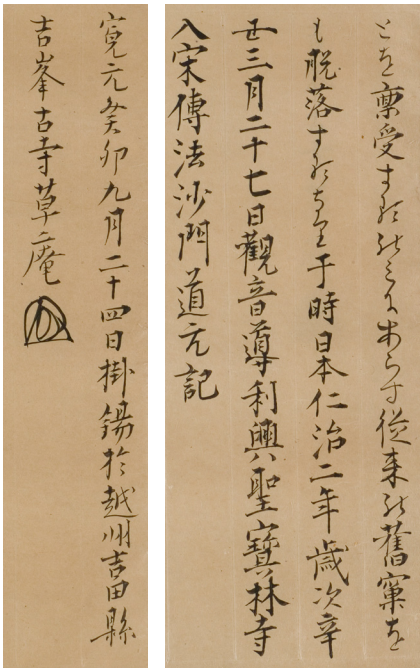 とを稟受するのみにあらす從来の舊窠を
も脱落するなり于時日本仁治二年歳次辛
丑三月二十七日觀音導利興聖寶林寺
入宋傳法沙門道元記
寛元癸卯九月二十四日掛錫於越州吉田縣
吉峯古寺草庵